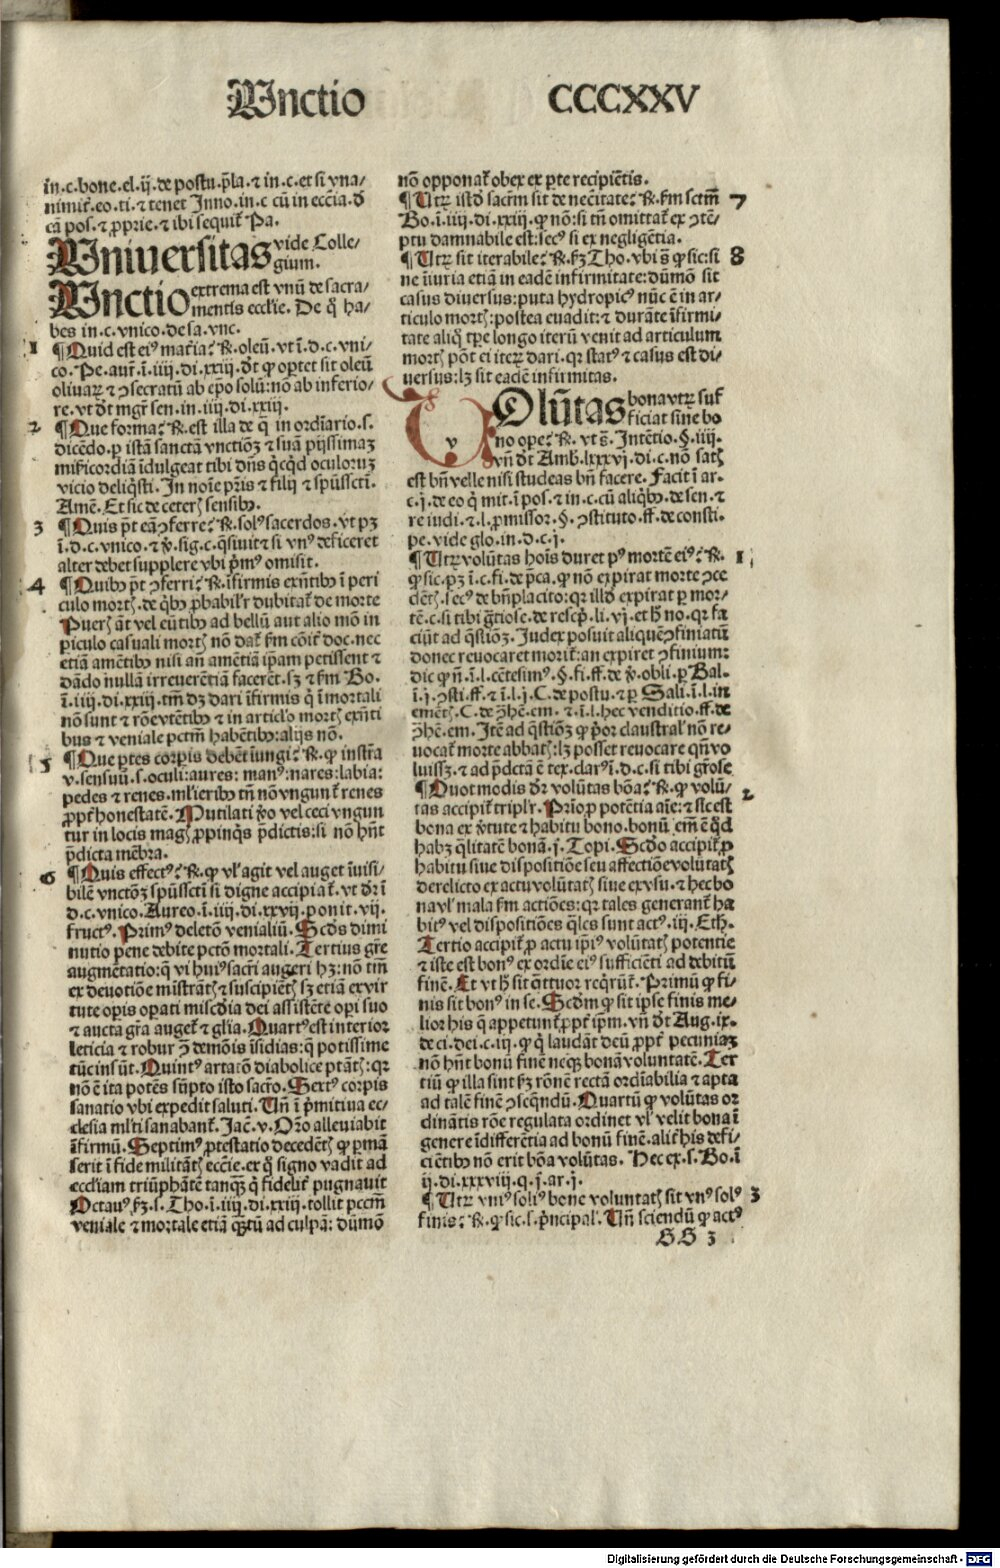 Unctio CCCXXV
in.c.bone.el.ij.de postu.p̄la.⁊ in.c.et si vna-
nimit̃.eo.ti.⁊ tenet Inno.in.c cū in eccīa.d̄
cā pos.⁊ ꝓprie.⁊ ibi sequit̃ Pa.
Uniuersitas vide Colle-
gium.
Unctio extrema est vnū de sacra-
mentis eccl'ie. De q̄ ha-
bes in.c.vnico.de sa.vnc.
1 ¶Quid est eiꝰ mat̄ia? R̃.oleū.vt ī.d.c.vni-
co.Pe.aur̄.ī.iiij.di.xxiij.d̄t ꝙ oꝑtet sit oleū
oliuaꝝ ⁊ ꝯsecratū ab ep̄o solū:nō ab inferio-
re.vt d̄t mgr̄ sen.in.iiij.di.xxiij.
2 ¶Que forma? R̃.est illa de q̄ in ordīario.s.
dicēdo.ꝑ istā sanctā vnctiōꝫ ⁊ suā pijssimaꝫ
mis̄icordiā īdulgeat tibi dn̄s q̇cq̇d oculoruꝫ
vicio deliq̇sti. In noīe pr̄is ⁊ filij ⁊ sp̄ūssctī.
Amē. Et sic de ceteꝝ sensibꝰ.
3 ¶Quis p̄t eā ꝯferre? R̃.solꝰ sacerdos.vt pꝫ
ī.d.c.vnico.⁊ ꝟ.sig.c.q̄siuit ⁊ si vnꝰ deficeret
alter debet supplere vbi p̄mꝰ omisit.
4 ¶Quibꝰ p̄t ꝯferri? R̃.īfirmis exn̄tibꝰ ī peri
culo mortꝭ.de q̇bꝰ ꝓbabilr̄ dubitat̃ de morte
Pueris āt vel eūtibꝰ ad bellū aut alio mō in
piculo casuali mortꝭ nō dat̃ fm cōit̃ doc.nec
etiā amētibꝰ nisi an̄ amētiā ip̄am petissent ⁊
dādo nullā irreuerētiā facerēt.sꝫ ⁊ fm Bo.
ī.iiij.di.xxiij.tm̄ dꝫ dari īfirmis q̇ ī mortali
nō sunt ⁊ rōe vtētibꝰ ⁊ in articl'o mortꝭ exn̄ti
bus ⁊ veniale pctm̄ habētibꝰ:alijs nō.
5 ¶Que ꝑtes corꝑis debēt īungi? R̃.ꝙ instr̄a
v.sensuū.s.oculi:aures:manꝰ:nares:labia:
pedes ⁊ renes.ml'ieribꝰ tn̄ nō vngunt̃ renes
ꝓpt̃ honestatē. Mutilati ꝟo vel ceci vngun
tur in locis magꝭ ꝓpinq̇s p̄dictis:si nō hn̄t
p̄dicta mēbra.
6 ¶Quis effectꝰ? R̃.ꝙ vl' agit vel auget īuisi-
bilē vnctōꝫ sp̄ūssctī si digne accipiat̃.vt dr̄ ī
d.c.vnico. Aureo.ī.iiij.di.xxvij.ponit.vij.
fructꝰ. Primꝰ deletō venialiū. Scd̄s dimi
nutio pene debite pctō mortali. Tertius gr̄e
augmētatio:q̇ vi huiꝰ sacr̄i augeri hꝫ:nō tm̄
ex deuotiōe mistrātꝭ ⁊ suscipiētꝭ sꝫ etiā ex vir
tute opis opati misc̄dia dei assistēte opi suo
⁊ aucta gr̄a auget̃ ⁊ glīa. Quartꝰ est interior
leticia ⁊ robur ꝯ̄ demōis īsidias:q̇ potissime
tūc insūt. Quintꝰ artatō diabolice ptātꝭ:qr
nō ē ita potēs sup̄to isto sacr̄o. Sextꝰ corpis
sanatio vbi expedit saluti. Un̄ ī p̄mitiua ec-
clesia ml'ti sanabant̃. Jac̄.v. Or̄o alleuiabit
īfirmū. Septimꝰ ꝓtestatio decedētꝭ ꝙ ꝑmā
serit ī fide militātꝭ eccīe.ex q̇ signo vadit ad
eccl'iam triūphātē tanqꝫ q̇ fidelit̃ pugnauit
Octauꝰ fꝫ.s.Tho.ī.iiij.di.xxiij.tollit pctm̄
veniale ⁊ mortale etiā qꝫtū ad culpā: dūmō
nō opponat̃ obex ex ꝑte recipiētis.
¶Utꝝ istd̄ sacr̄m sit de nec̄itate? R̃.fm sctm̄ 7
Bo.ī.iiij.di.xxiij.ꝙ nō:si tn̄ omittat̃ ex ꝯtē-
ptu damnabile est:secꝰ si ex negligētia.
¶Utꝝ sit iterabile? R̃.fꝫ Tho.vbi s̄ ꝙ sic:si 8
ne īiuria etiā in eadē infirmitate:dūmō sit
casus diuersus:puta hydropicꝰ nūc ē in ar-
ticulo mortꝭ:postea euadit:⁊ durāte īfirmi-
tate aliq̇ tꝑe longo iterū venit ad articulum
mortꝭ pōt ei iteꝝ dari.qr statꝰ ⁊ casus est di-
uersus:lꝫ sit eadē infirmitas.
v Olūtas bona vtꝝ suf
ficiat sine bo
no oꝑe? R̃. vt s̄. Intētio.§.iiij.
vn̄ d̄t Amb.lxxxvj.di.c.nō satꝭ
est bn̄ velle nisi studeas bn̄ facere. Facit ī ar-
c.j.de eo q̇ mit.ī pos.⁊ in.c.cū aliq̇bꝰ.de sen.⁊
re iudi.⁊.l.ꝓmissor.§.ꝯstituto.ff.de consti-
pe.vide glo.in.d.c.j.
¶Utꝝ volūtas hoīs duret pꝰ mortē eiꝰ? R̃. 1
ꝙ sic.pꝫ ī.c.fi.de p̄ca.ꝙ nō expirat morte ꝯce
dētꝭ.secꝰ de bn̄placito:qr illd̄ expirat ꝑ mor-
tē.c.si tibi gr̄iose.de rescp̄.li.vj.et hꝭ no.qr fa
ciūt ad q̄stiōꝫ. Judex posuit aliquē ꝯfiniatū
donec reuocaret morit̃:an expiret ꝯfinium?
dic ꝙ n̄.ī.l.cētesimꝰ.§.fi.ff.de ꝟ.obli.ꝑ Bal-
ī.j.ꝯsti.ff.⁊ ī.l.j.C.de postu.⁊ ꝑ Sali.ī.l.in
emētꝭ.C.de ꝯ̄hē.em.⁊.ī.l.hec venditio.ff.de
ꝯ̄hē.em. Itē ad q̄stiōꝫ ꝙ p̄or claustral' nō re-
uocat̃ morte abbatꝭ:lꝫ posset reuocare qn̄ vo
luissꝫ.⁊ ad p̄dcta ē tex.clarꝰ ī.d.c.si tibi gr̄ose
¶Quot modis dr̄ volūtas bōa? R̃.ꝙ volū- 2
tas accipit̃ tripl'r. Prīo ꝓ potētia aīe:⁊ sic est
bona ex ꝟtute ⁊ habitu bono.bonū em̄ ē q̇d
habꝫ q̇litatē bonā.j. Topi. Scd̄o accipit̃ ꝓ
habitu siue dispositiōe seu affectiōe volūtatꝭ
derelicto ex actu volūtatꝭ siue ex vsu.⁊ hec bo
na vl' mala fm actiōes:qr tales generant̃ ha
bitꝰ vel dispositiōes q̇les sunt actꝰ.iij. Eth.
Tertio accipit̃ ꝓ actu ip̄iꝰ volūtatꝭ potentie
⁊ iste est bonꝰ ex ordīe eiꝰ sufficiēti ad debitū
finē. Et vt hꝭ sit q̇ttuor req̇rūt̃. Primū ꝙ fi-
nis sit bonꝰ in se. Scd̄m ꝙ sit ip̄e finis me-
lior his q̄ appetunt̃ ꝓpt̃ ip̄m.vn̄ d̄t Aug.ix.
de ci.dei.c.iij.ꝙ q̇ laudāt deū ꝓpt̃ pecuniaꝫ
nō hn̄t bonū finē neqꝫ bonā voluntatē. Ter
tiū ꝙ illa sint fꝫ rōnē rectā ordīabilia ⁊ apta
ad talē finē ꝯseq̄ndū. Quartū ꝙ volūtas or
dināntis rōe regulata ordinet vl' velit bona ī
genere īdifferētia ad bonū finē.alit̃ his defi-
ciētibꝰ nō erit bōa volūtas. Hec ex.s.Bo.ī
ij.di.xxxviij.q.j.ar.j.
¶Utꝝ vniꝰ soliꝰ bone voluntatꝭ sit vnꝰ solꝰ 3
finis? R̃.ꝙ sic.s.p̄ncipal'. Un̄ sciendū ꝙ actꝰ
SS 3
Digitalisierung gefördert durch die Deutsche Forschungsgemeinschaft - DFG